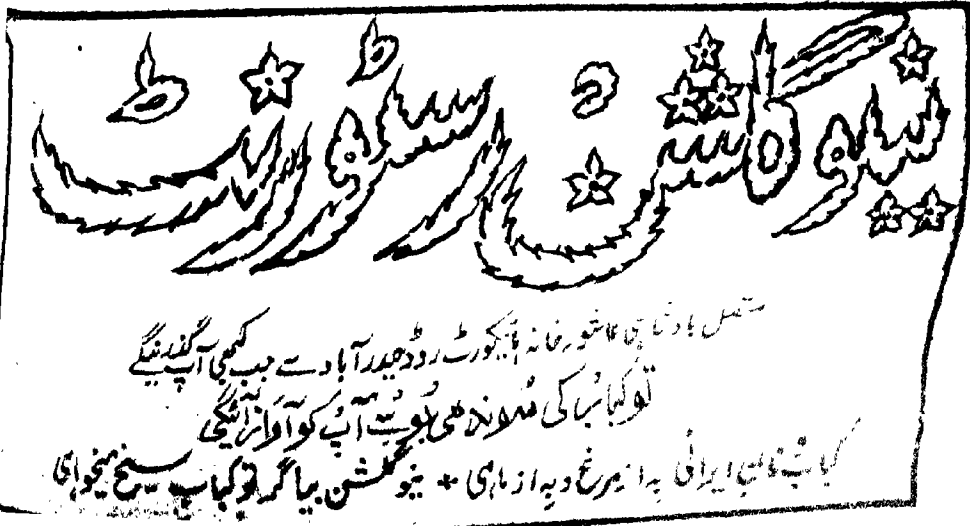 نیو گلشن رسٹورنٹ
متصل بادشاہی عاشور خانہ ہائیکورٹ روڈ حیدرآباد سے جب کبھی آپ گذرینگے
تو کباب کی سوندھی آپ کو آواز آئیگی
کباب نان ایرانی بہ از مرغ و بہ از ماہی + نیو گلشن بیا گر تو کباب سیخ میخواہی